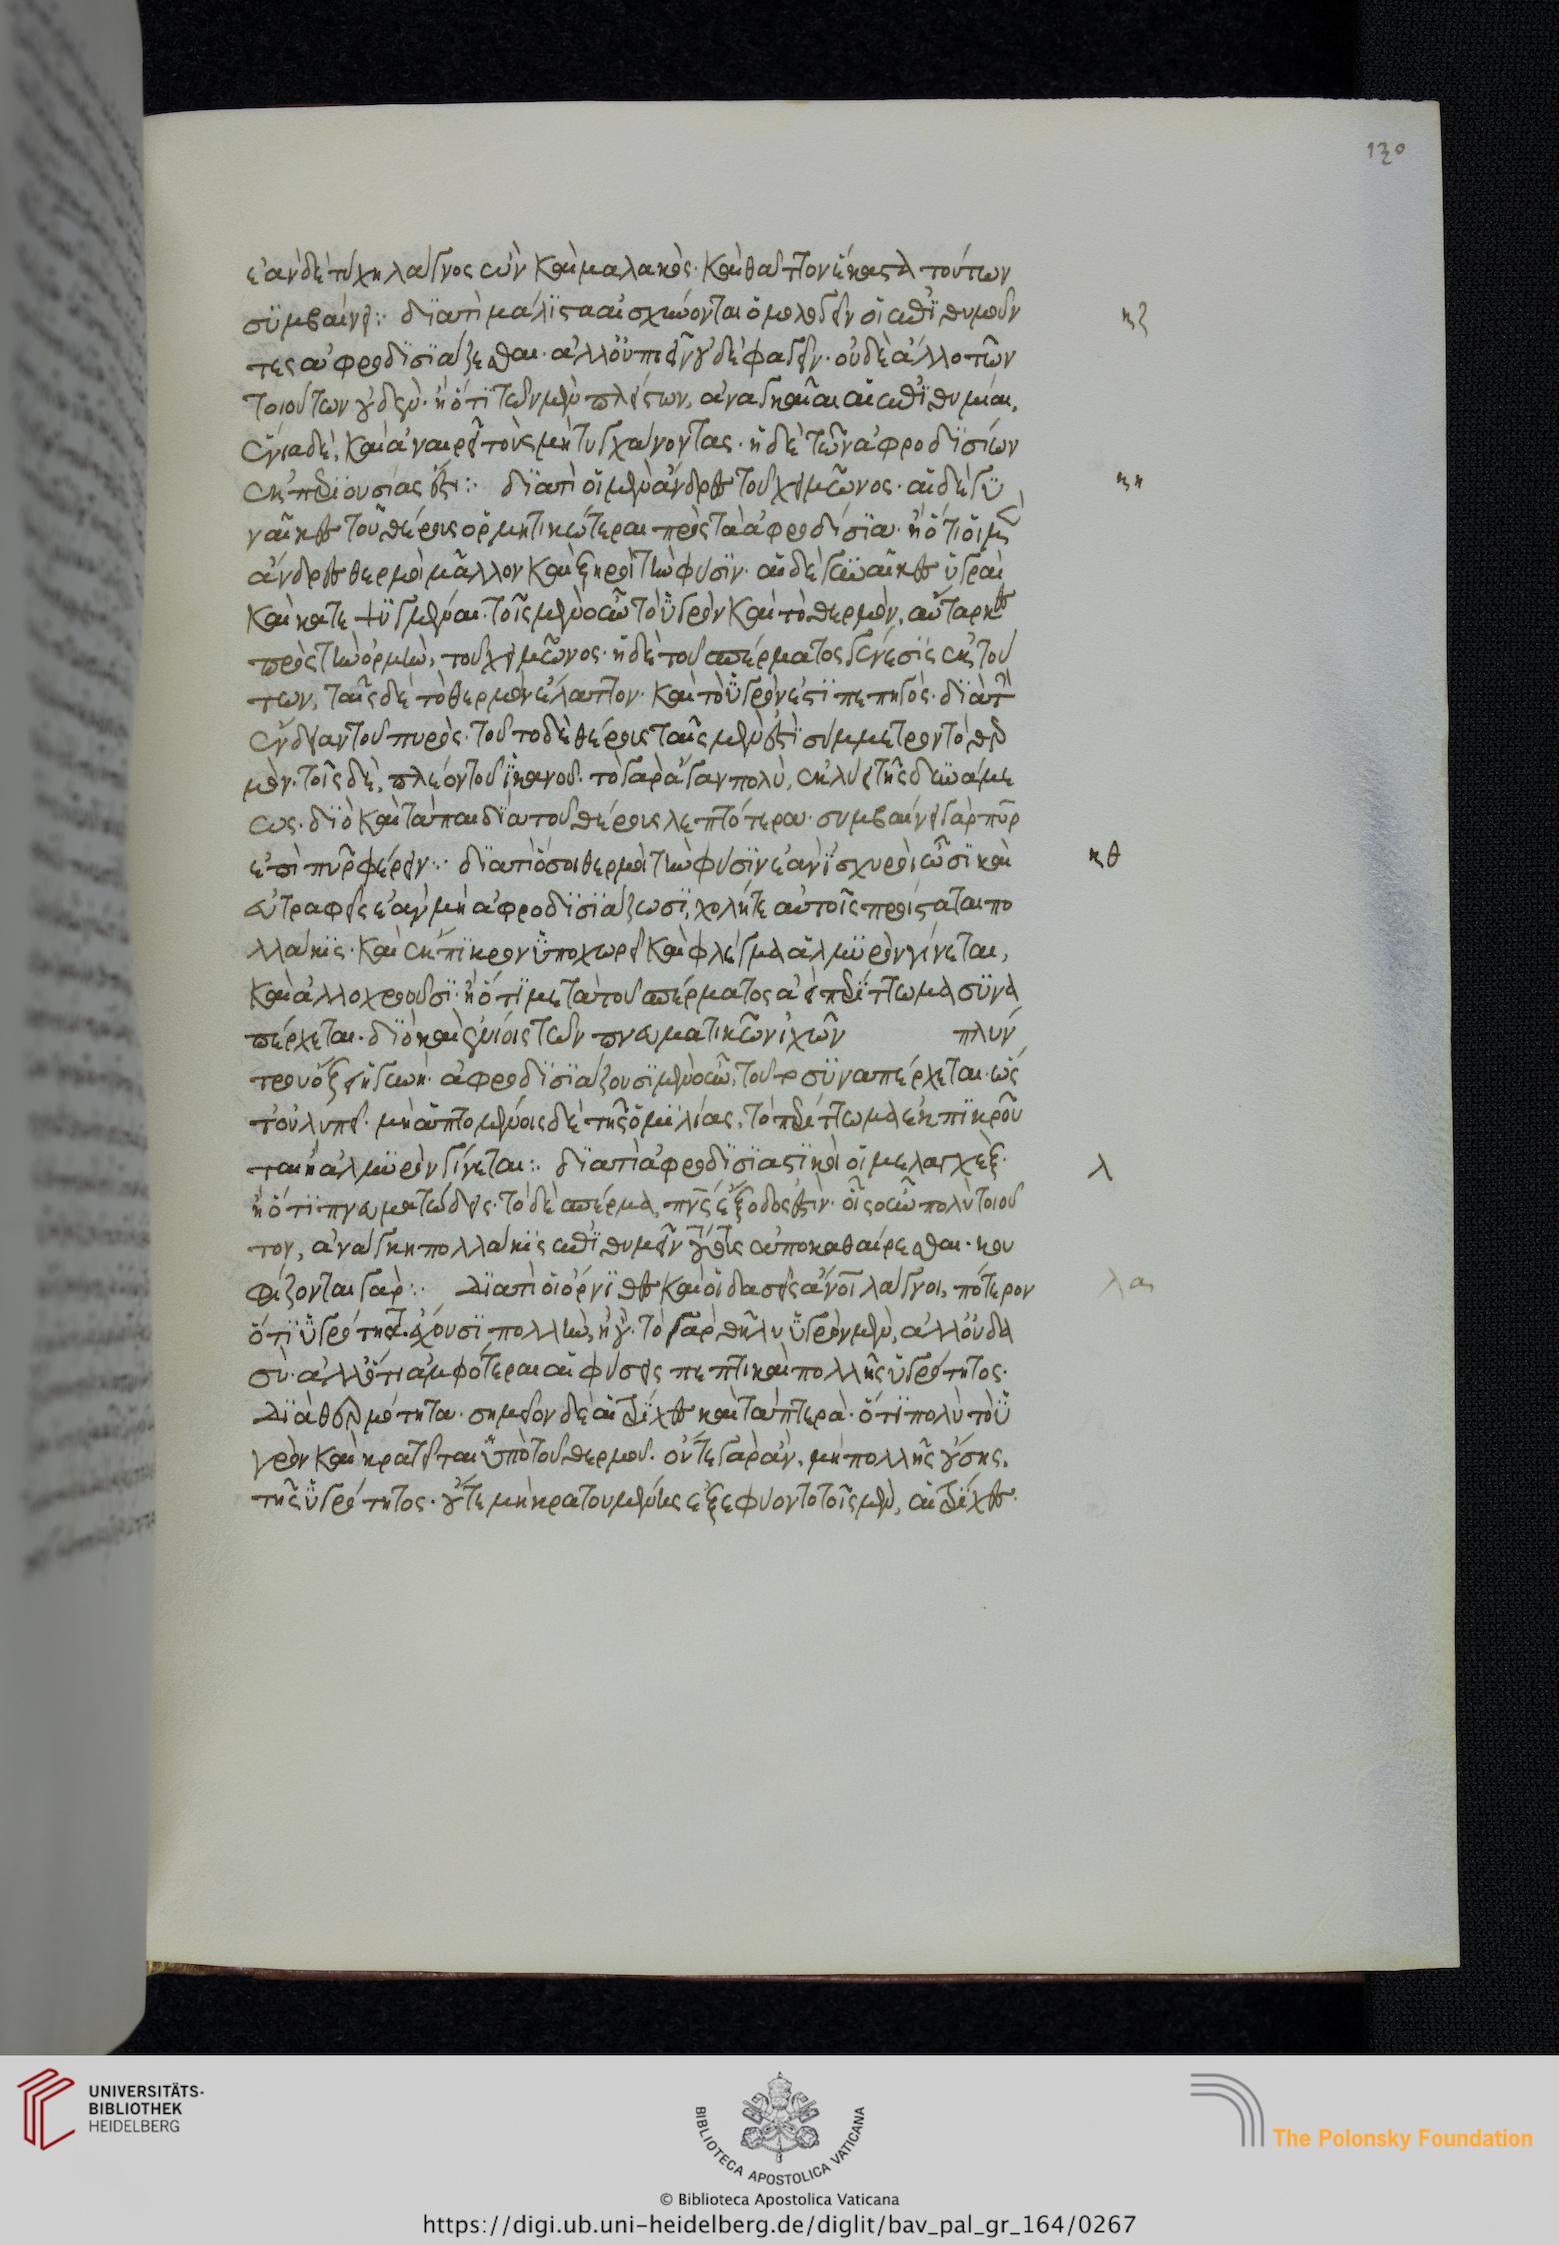 130
ἐὰν δὲ τύχῃ λάγνος ὢν καὶ μαλακὸς· καὶ θᾶττον ἕκαστα τούτων
συμβαίνει:· διατί μάλιστα αἰσχύνονται ὁμολογεῖν οἱ ἐπιθυμοῦν κζ
τες ἀφροδισιάζεσθαι· ἀλλ οὐ πιεῖν οὐδὲ φαγεῖν· οὐδὲ ἄλλο τῶν
τοιούτων οὐδέν· ἢ ὅτι τῶν μὲν πλείστων, ἀναγκαῖαι αἱ ἐπιθυμίαι,
ἔνια δὲ, καὶ ἀναιρεῖ τοὺς μὴ τυγχάνοντας· ἡ δὲ τῶν ἀφροδισίων
ἐκ περιουσίας ἐστι:· διατί οἱ μὲν ἄνδρες τοῦ χειμῶνος· αἱ δὲ γυ κη
ναῖκες τοῦ θέρους ὁρμητικώτεραι πρὸς τὰ ἀφροδίσια· ἢ ὅτι οἱ μὲν
ἄνδρες θερμοὶ μᾶλλον καὶ ξηροὶ τὴν φύσιν· αἱ δὲ γυναῖκες ὑγραὶ
καὶ κατεψυγμέναι· τοῖς μὲν οὖν τὸ ὑγρὸν καὶ τὸ θερμὸν, αὔταρκες
πρὸς τὴν ὁρμὴν, τοῦ χειμῶνος· ἡ δὲ τοῦ σπέρματος γένεσις ἐκ τού
των, ταῖς δὲ τὸ θερμὸν ἔλαττον· καὶ τὸ ὑγρὸν ἐστι πεπηγὸς· διὰ τὴν
ἔνδειαν τοῦ πυρὸς· τοῦτο δὲ θέρους ταῖς μὲν ἐστὶ σύμμετρον τὸ θερ
μὸν· τοῖς δὲ, πλέον τοῦ ἱκανοῦ· τὸ γὰρ ἄγαν πολὺ, ἐκλύει τῆς δυνάμε
ως· διὸ καὶ τὰ παιδία τοῦ θέρους λεπτότερα· συμβαίνει γὰρ πῦρ
ἐπὶ πῦρ φέρειν:· διατί ὅσοι θερμοὶ τὴν φύσιν ἐὰν ἰσχυροὶ ὦσι καὶ κθ
εὐτραφεῖς ἐὰν μὴ ἀφροδισιάζωσι, χολή τε αὐτοῖς προίσταται πο
λλάκις· καὶ ἐκ πικρον ὑποχωρεῖ καὶ φλέγμα ἁλμυρὸν γίνεται,
καὶ ἀλλοχροοῦσι· ἢ ὅτι μετὰ τοῦ σπέρματος ἀεὶ περίττωμα συνα
πέρχεται· διὸ καὶ ἐνίοις τῶν πνευματικῶν ἰχῶν πλυν
τρου ὄξει ἡ γονή· ἀφροδισιάζουσι μὲν οὖν, τοῦτο συναπέρχεται· ὥσ
τ οὐ λυπεῖ· μὴ ἁπτομένοις δὲ τῆς ὁμιλίας, τὸ περίττωμα ἐκπικροῦ
ται ἢ ἁλμυρὸν γίνεται:· διατί ἀφροδισιαστικοὶ οἱ μελαγχολικοί· λ
ἢ ὅτι πνευματώδεις· τὸ δὲ σπέρμα, πνεύματος ἔξοδος ἐστίν· οἷς οὖν πολὺ τοιοῦ
τον, ἀνάγκη πολλάκις ἐπιθυμεῖν τούτοις ἀποκαθαίρεσθαι· κου
φίζονται γὰρ:· Διατί οἱ ὄρνιθες καὶ οἱ δασεῖς ἄνθρωποι λάγνοι, πότερον λα
ὅτι ὑγρότητα ἔχουσι πολλὴν, ἢ οὔ· τὸ γὰρ θῆλυ ὑγρὸν μὲν, ἀλλ οὐ δα
σὺ· ἀλλ ὅτι ἀμφότεραι αἱ φύσεις πεπτικαὶ πολλῆς ὑγρότητος·
Διὰ θερμότητα· σημεῖον δὲ αἱ τρίχες καὶ τὰ πτερά· ὅτι πολὺ τὸ ὑ
γρὸν καὶ κρατεῖται ὑπὸ τοῦ θερμοῦ· οὔτε γὰρ ἂν, μὴ πολλῆς οὔσης,
τῆς ὑγρότητος· οὔτε μὴ κρατουμένης ἐξεφύοντο τοῖς μὲν, αἱ τρίχες·
UNIVERSITÄTS-
BIBLIOTHEK
HEIDELBERG
BIBLIOTECA APOSTOLICA VATICANA
The Polonsky Foundation
© Biblioteca Apostolica Vaticana
https://digi.ub.uni-heidelberg.de/diglit/bav_pal_gr_164/0267